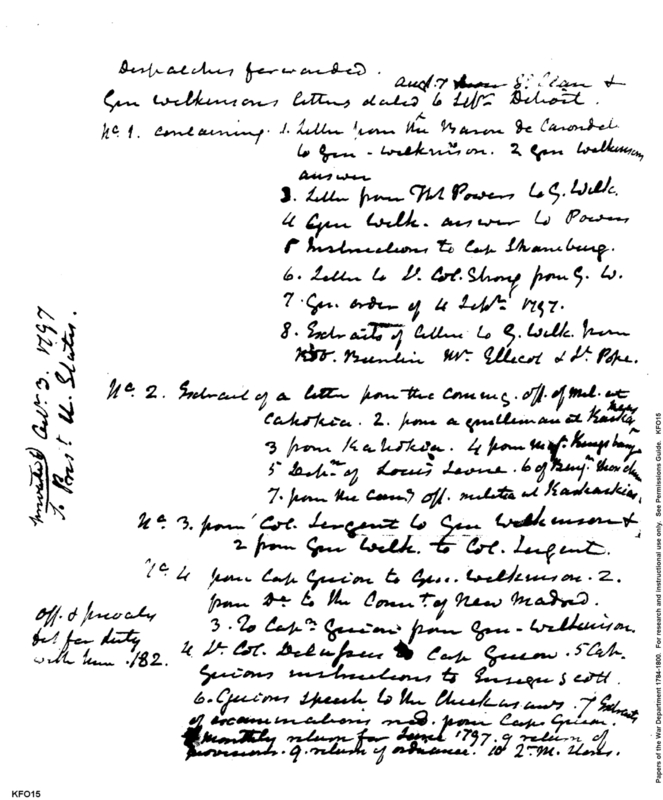 Despatches forwarded.
Gen Wilkinsons letters dated 6 Septr Detroit.
No. 1. containing. 1. Letter from the Baron de Carondel
to Gen - Wilkinson. 2 Gen Wilkinsons
answer
3. Letter from Powers to G. Wilk.
4 Gen Wilk. answer to Powers
5 Instructions to Cap Shaumburg.
6. Letter to Lt. Col. Strong from G. W.
7. Gen. order of 4 Septr 1797.
8. Extracts of letters to G. Wilk. from
Mr. Ellicot & Lt. Pope.
No. 2. Extract of a letter from the comm.g. off. of mil. at
Cahokia. 2. from a gentleman at
3 from Kahokia. 4 from
5 of Louis . 6 of Benj.
7. from the Comm.g off. militia at Kaskaskias.
No. 3. from Col. Sergent to Gen Wilkinson &
2 from Gen Wilk. to Col. Sergent.
No. 4 from Cap Guion to Gen. Wilkinson. 2.
from Do to the Commt of New Madrid.
3. To Capn Guion from Gen - Wilkinson.
4 Lt. Col. to Cap Guion. 5 Cap.
Guions instructions to Ensign Scott.
6. Guions speech to the Chickasaws. 7 Extracts
of examinations recd. from Cap Guion.
monthly return for June 1797. 9 return of
provisions. 9. return of ordnance. 10 2r. M. stores.
Off. & privates
for duty
with 182.
3. 1797
To Prest. U. States.
KFO15
Papers of the War Department 1784-1800. For research and instructional use only. See Permissions Guide. KFO15